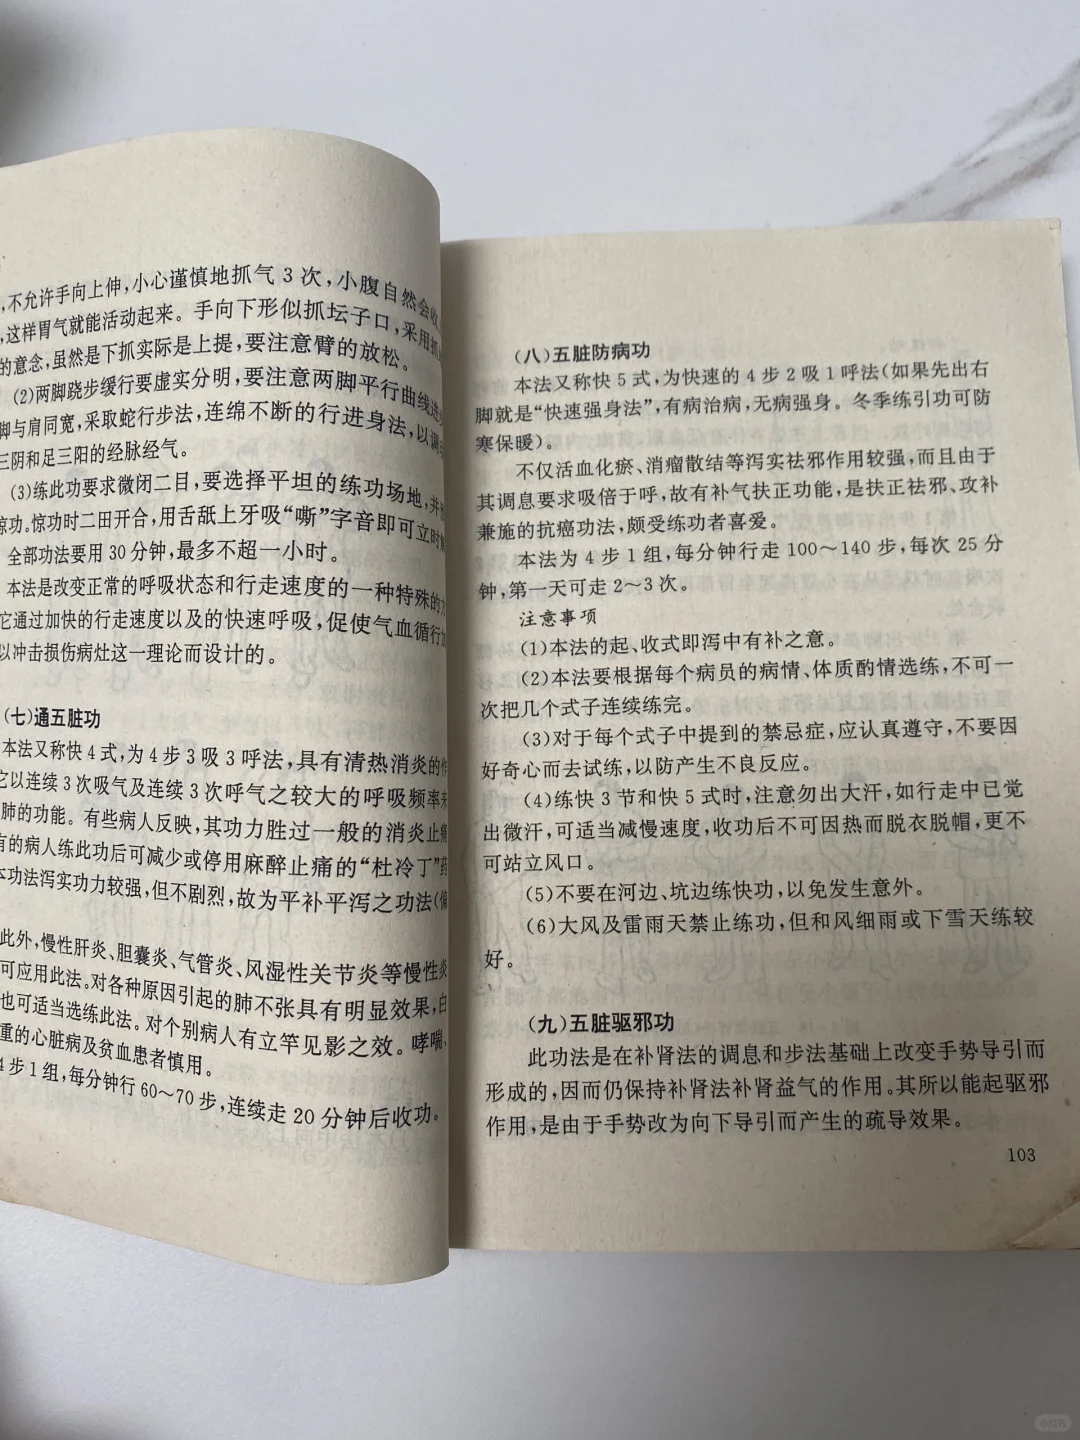 ,不允许手向上伸,小心谨慎地抓气3次,小腹自然会收
,这样胃气就能活动起来。手向下形似抓坛子口,采用抓
的意念,虽然是下抓实际是上提,要注意臂的放松。
(2)两脚跷步缓行要虚实分明,要注意两脚平行曲线进
脚与肩同宽,采取蛇行步法,连绵不断的行进身法,以调
三阴和足三阳的经脉经气。
(3)练此功要求微闭二目,要选择平坦的练功场地,并
惊功。惊功时二田开合,用舌舐上牙吸“嘶”字音即可立时
全部功法要用30分钟,最多不超一小时。
本法是改变正常的呼吸状态和行走速度的一种特殊的
它通过加快的行走速度以及的快速呼吸,促使气血循行
以冲击损伤病灶这一理论而设计的。
(七)通五脏功
本法又称快4式,为4步3吸3呼法,具有清热消炎的作
它以连续3次吸气及连续3次呼气之较大的呼吸频率来
肺的功能。有些病人反映,其功力胜过一般的消炎止痛
有的病人练此功后可减少或停用麻醉止痛的“杜冷丁”药
本功法泻实功力较强,但不剧烈,故为平补平泻之功法(偏
此外,慢性肝炎、胆囊炎、气管炎、风湿性关节炎等慢性炎
可应用此法。对各种原因引起的肺不张具有明显效果,白
也可适当选练此法。对个别病人有立竿见影之效。哮喘、
重的心脏病及贫血患者慎用。
4步1组,每分钟行60～70步,连续走20分钟后收功。
(八)五脏防病功
本法又称快5式,为快速的4步2吸1呼法(如果先出右
脚就是“快速强身法”,有病治病,无病强身。冬季练引功可防
寒保暖)。
不仅活血化瘀、消瘤散结等泻实祛邪作用较强,而且由于
其调息要求吸倍于呼,故有补气扶正功能,是扶正祛邪、攻补
兼施的抗癌功法,颇受练功者喜爱。
本法为4步1组,每分钟行走100～140步,每次25分
钟,第一天可走2～3次。
注意事项
(1)本法的起、收式即泻中有补之意。
(2)本法要根据每个病员的病情、体质酌情选练,不可一
次把几个式子连续练完。
(3)对于每个式子中提到的禁忌症,应认真遵守,不要因
好奇心而去试练,以防产生不良反应。
(4)练快3节和快5式时,注意勿出大汗,如行走中已觉
出微汗,可适当减慢速度,收功后不可因热而脱衣脱帽,更不
可站立风口。
(5)不要在河边、坑边练快功,以免发生意外。
(6)大风及雷雨天禁止练功,但和风细雨或下雪天练较
好。
(九)五脏驱邪功
此功法是在补肾法的调息和步法基础上改变手势导引而
形成的,因而仍保持补肾法补肾益气的作用。其所以能起驱邪
作用,是由于手势改为向下导引而产生的疏导效果。
103
小红书